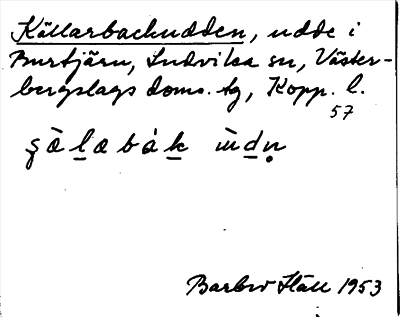 Källarbackudden, udde i
Burtjärn, Ludvika sn, Väster-
bergslags doms. tg, Kopp. l.
57
Barbro Ståll 1953